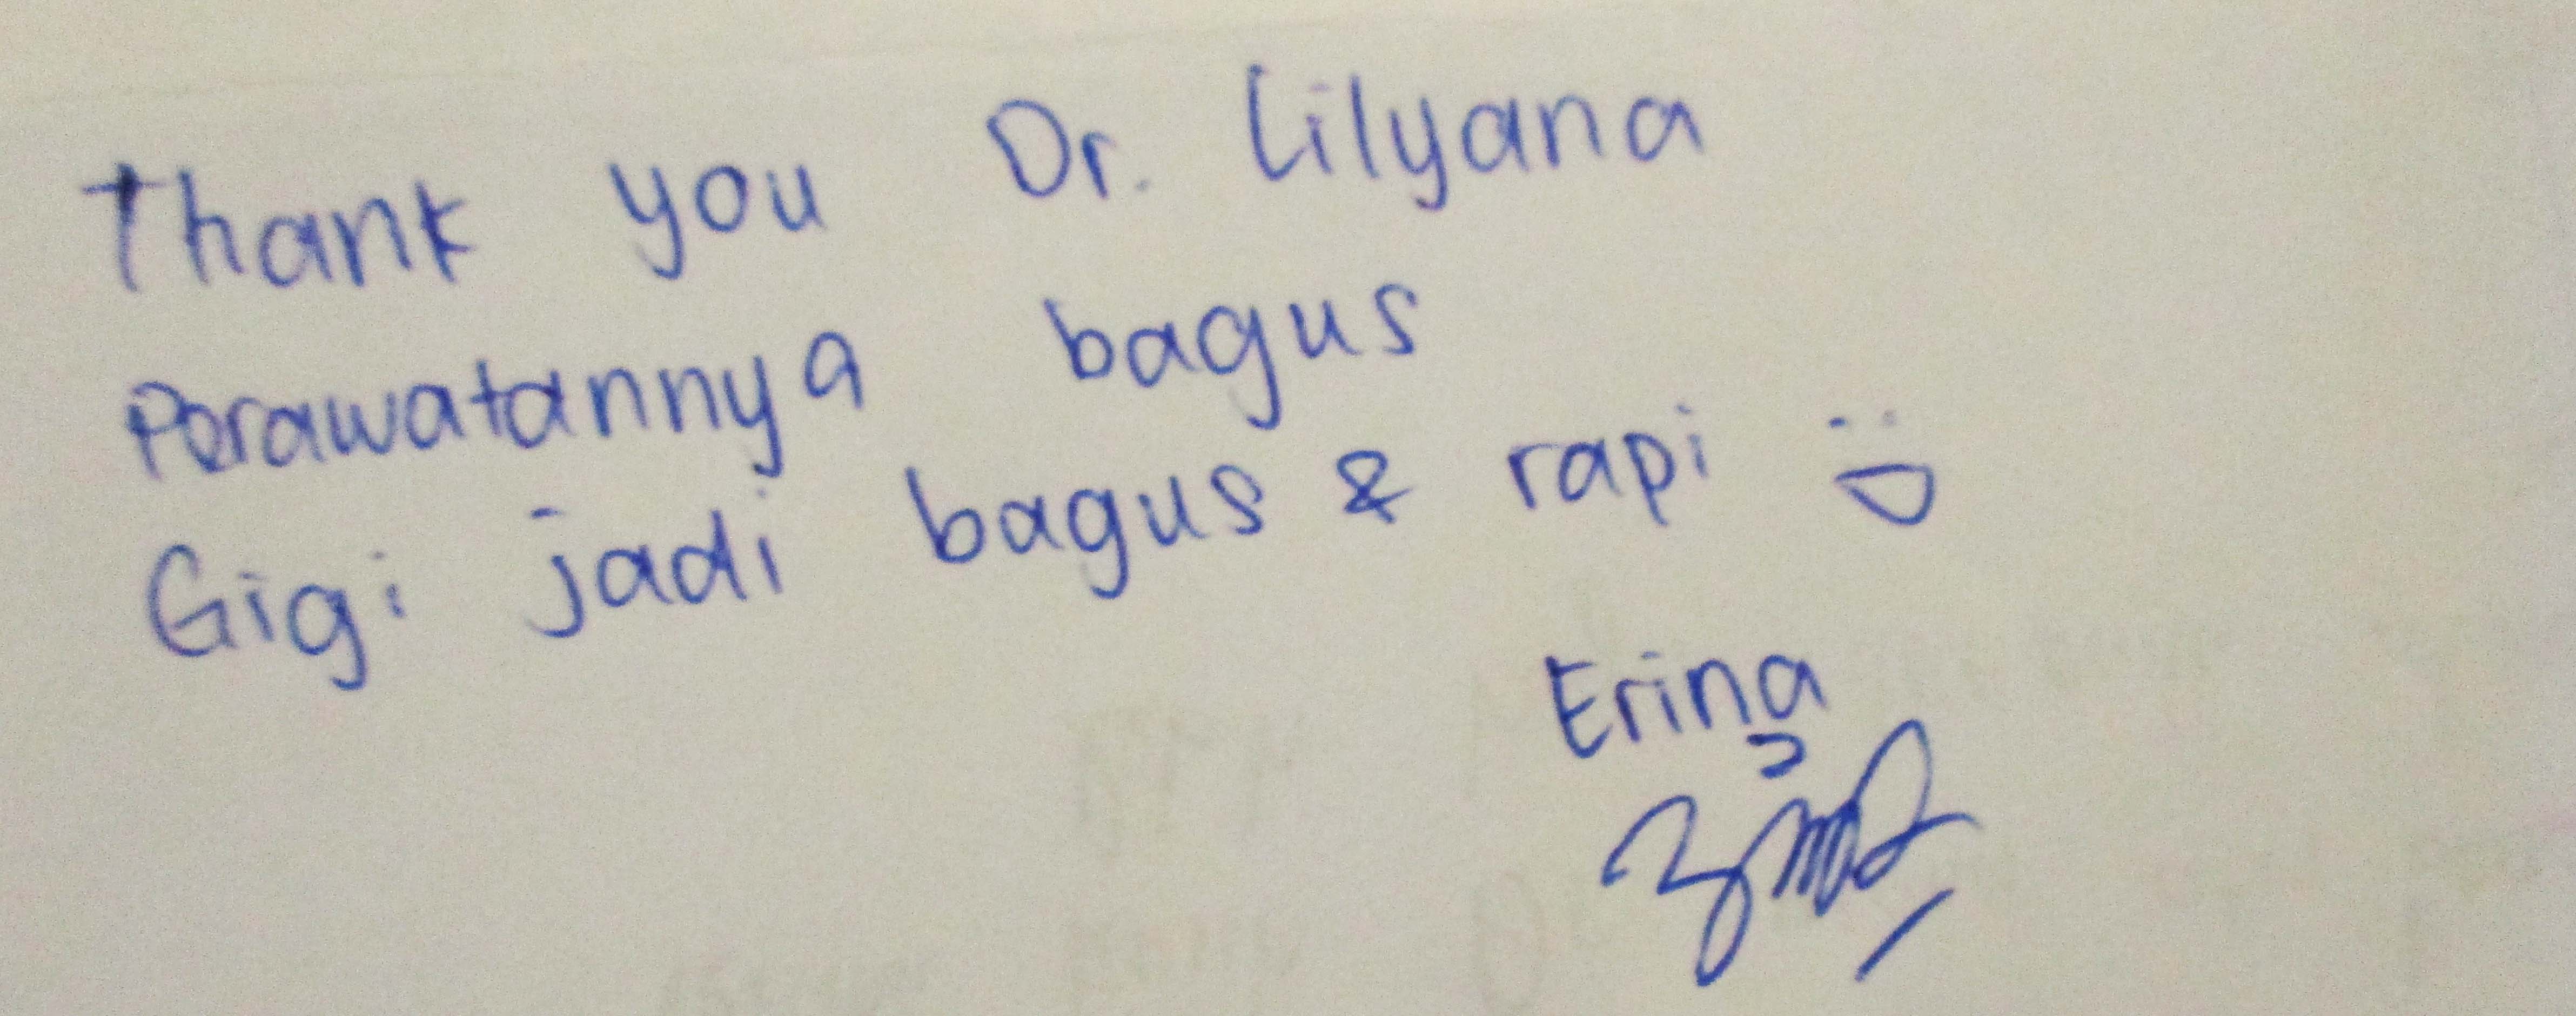 Thank you Dr. Lilyana
Perawatannya bagus
Gigi jadi bagus & rapi :D
Erina